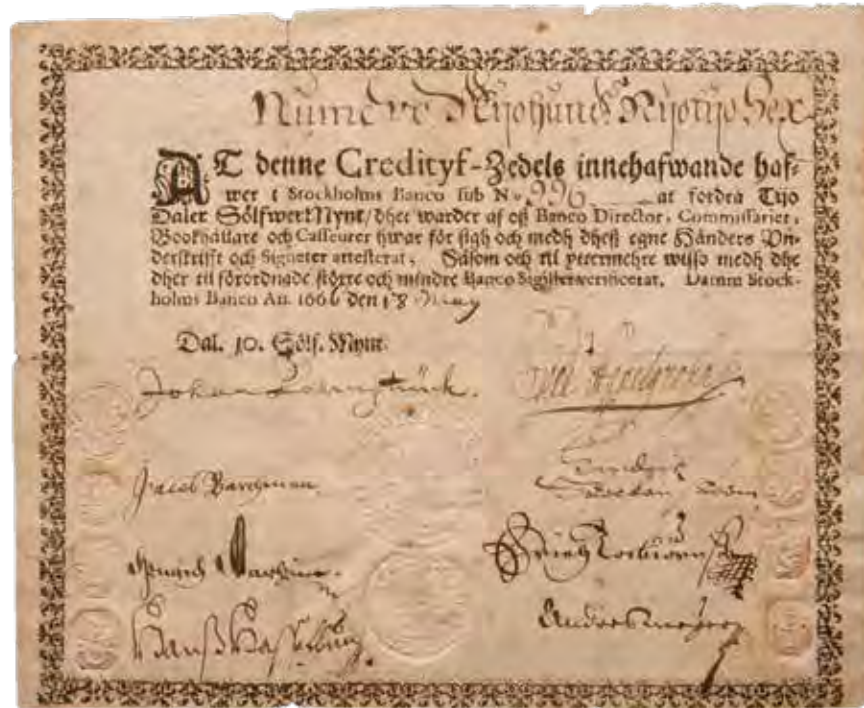 Numero Nijohund Nijotijo Sex
AT denne Credityf-Zedels innehafwande haf-
wer i Stockholms Banco sub No 996 at fordra Tijo
Daler Sölfwer Mynt/ dhet warder af oß Banco Director, Commissarier,
Bookhållare och Casseurer hwar för sigh och medh dheß egne Händers Vn-
derskrifft och Signeter attesterat, Såsom och til yttermehre wisso medh dhe
dher til förordnade större och mindre Banco Sigiller verificerat. Datum Stock-
holms Banco An. 1666 den 18 May
Dal. 10. Sölf. Mynt.
Johan
Jacob
Hinrich
Hanß